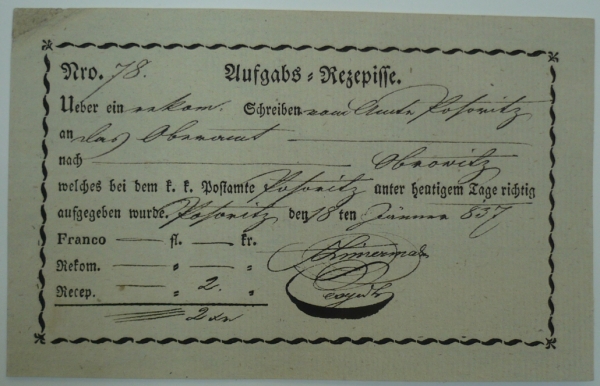 Nro. 78. Aufgabs-Rezepisse.
Ueber ein rekom. Schreiben vom Amte Posoritz
an das Oberamt
nach Obrowitz
welches bei dem k. k. Postamte Posoritz unter heutigem Tage richtig
aufgegeben wurde. Posoritz den 18 ten Jänner 837
Franco — fl. — kr.
Rekom. — " — "
Recep. — " 2. "
2 xr